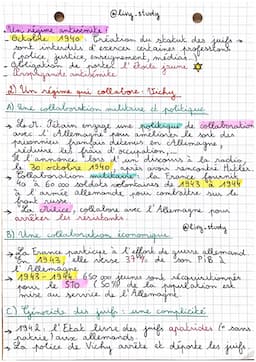 @liny_study
Un régime antisémite :
- Octobre 1940 : Création du statut des juifs →
sont interdits d'exercer certaines professions
(police, justice, enseignement, médias)
- Obligation de porter l'étoile jaune
- Propagande antisémite
2) Un régime qui collabore : Vichy
A) Une collaboration militaire et politique
→ Le M. Pétain engage une politique de collaboration
avec l'Allemagne pour améliorer le sort des
prisonniers français détenus en Allemagne,
réduire les frais d'occupation,...
Il l'annonce lors d'un discours à la radio,
le 30 octobre 1940, après avoir rencontré Hitler.
→ Collaboration militaire : la France fournit
40 à 60 000 soldats volontaires de 1943 à 1944
à l'armée allemande pour combattre sur le
front russe
→ La Milice, collabore avec l'Allemagne pour
arrêter les résistants.
@liny_study
B) Une collaboration économique
→ La France participe à l'effort de guerre allemand
En 1943, elle verse 37% de son PIB à
l'Allemagne
→ 1943 - 1944 : 650 000 jeunes sont réquisitionnés
pour le STO (50% de la population est
mise au service de l'Allemagne.
C) Génocide des juifs : une complicité
→ 1942 : l'État livre des juifs apatrides (= sans
patrie) aux allemands.
→ La police de Vichy arrête et déporte les juifs.